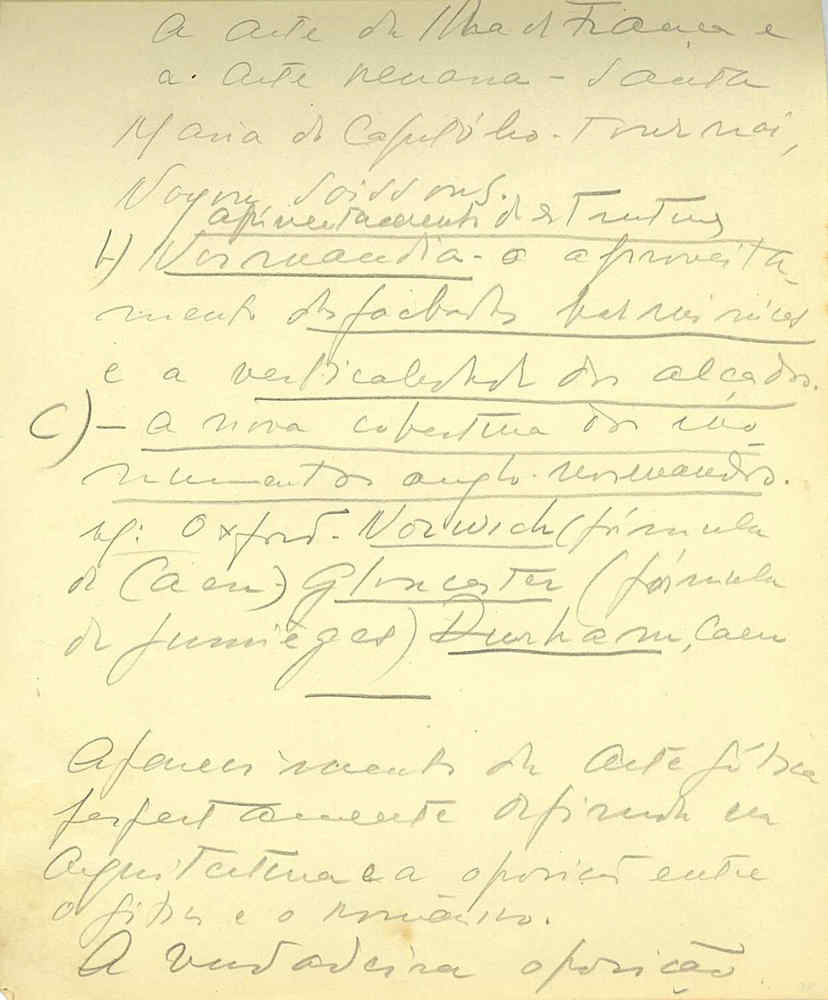 A arte da Ilha de França e
a arte renana - Santa
Maria do Capitólio - Tournai,
Noyon, Soissons.
de estruturas
b) Normandia - o aproveita-
mento das fachadas harmónicas
e a verticalidade dos alçados.
C) - a nova cobertura dos mo-
numentos anglo-normandos.
vg: Oxford - Norwich (fórmula
de Caen -) Gloucester (fórmula
de Jumièges) Durham, Caen
Aparecimento da arte gótica
perfeitamente definida na
Arquitectura e a oposição entre
o gótico e o românico.
A verdadeira oposição